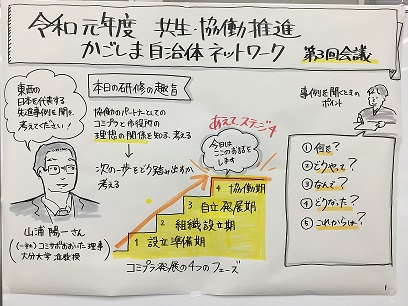 令和元年度 共生・協働推進
かごしま自治体ネットワーク 第3回会議
東西の
日本を代表する
先進事例を聞き、
考えてください!
山浦 陽一さん
(一社)コミサポおおいた 理事
大分大学 准教授
本日の研修の趣旨
協働のパートナーとしての
コミプラと市役所の
理想の関係を知る、考える
次の一歩をどう踏み出すか
考える
あえてステージ4
今日は
ここのお話を
します
4 協働期
3 自立発展期
2 組織設立期
1 設立準備期
コミプラ発展の4つのフェーズ
事例を聞くときの
ポイント
① 何を?
② どうやって?
③ なんで?
④ どうなった?
⑤ これからは?
1